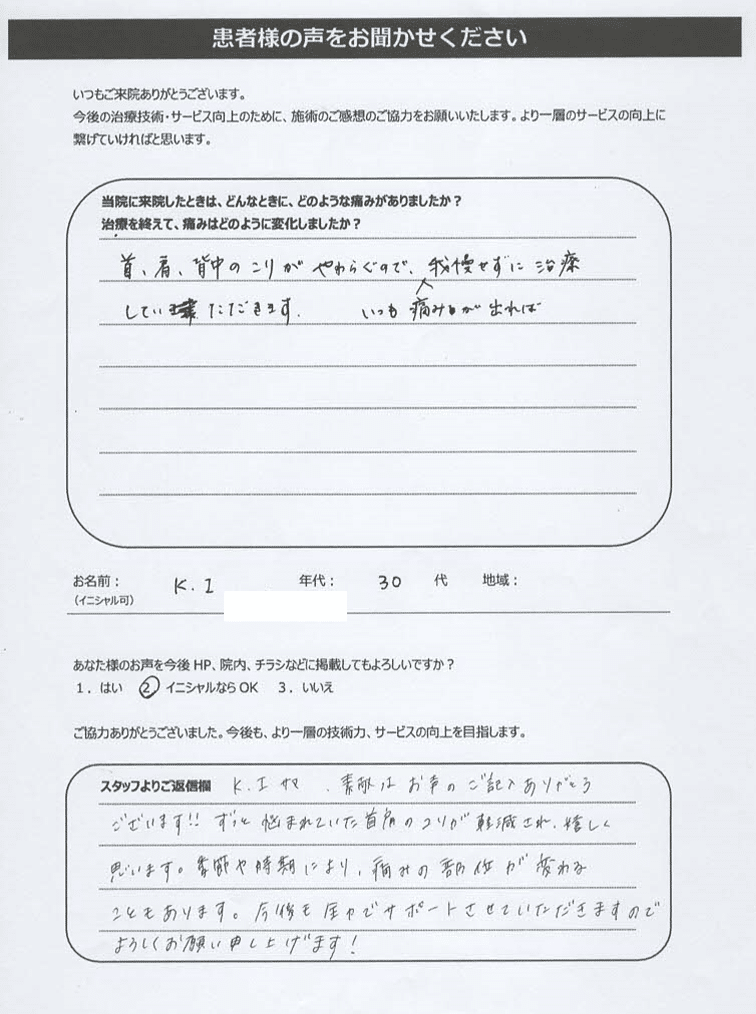 患者様の声をお聞かせください
いつもご来院ありがとうございます。
今後の治療技術・サービス向上のために、施術のご感想のご協力をお願いいたします。より一層のサービスの向上に
繋げていければと思います。
当院に来院したときは、どんなときに、どのような痛みがありましたか？
治療を終えて、痛みはどのように変化しましたか？
首、肩、背中のこりがやわらぐので、我慢せずに治療
していただきます. いつも痛みが出れば
お名前： K.I 年代： 30 代 地域：
（イニシャル可）
あなた様のお声を今後 HP、院内、チラシなどに掲載してもよろしいですか？
1．はい ② イニシャルなら OK 3．いいえ
ご協力ありがとうございました。今後も、より一層の技術力、サービスの向上を目指します。
スタッフよりご返信欄 K.I サマ 、素敵なお声のご記入ありがとう
ございます!! ずっと悩まれていた首肩のコリが軽減され、嬉しく
思います。季節や時期により、痛みの部位が変わる
こともあります。今後も全力でサポートさせていただきますので
よろしくお願い申し上げます！